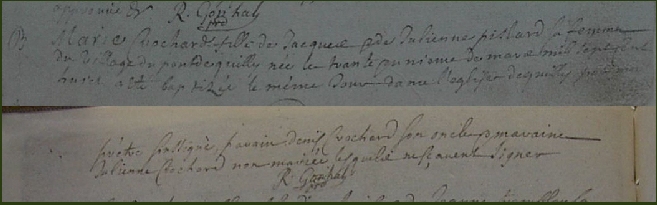 approuvé R. Gorihal
pre
B Marie Crochard fille de Jacques & de Julienne pellard sa femme
du village du pont de quilly née le trante unième de mars mil sept cent
a été baptizée le même Jour dans l'eglise de quilly
prêtre soussigné, parain denis Crochard son oncle & maraine
Julienne Crochard non mariée lesquels ne sçavent signer
R. Gorihal
pre